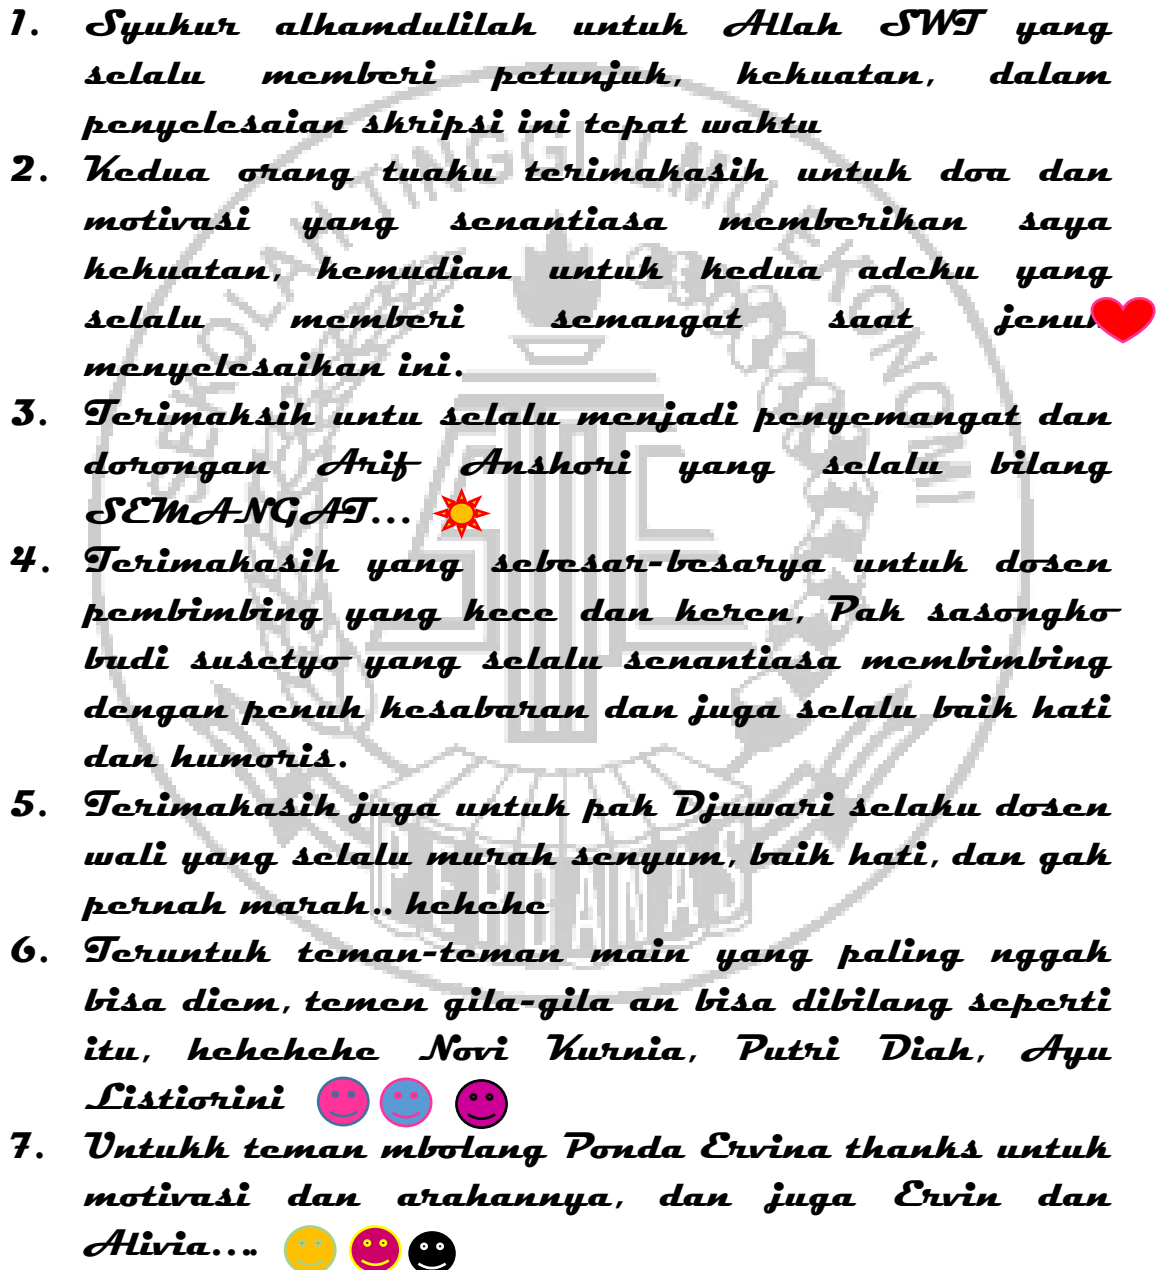 1. Syukur alhamdulilah untuk Allah SWT yang
selalu memberi petunjuk, kekuatan, dalam
penyelesaian skripsi ini tepat waktu
2. Kedua orang tuaku terimakasih untuk doa dan
motivasi yang senantiasa memberikan saya
kekuatan, kemudian untuk kedua adeku yang
selalu memberi semangat saat jenuh
menyelesaikan ini.
3. Terimaksih untu selalu menjadi penyemangat dan
dorongan Arif Anshori yang selalu bilang
SEMANGAT...
4. Terimakasih yang sebesar-besarya untuk dosen
pembimbing yang kece dan keren, Pak sasongko
budi susetyo yang selalu senantiasa membimbing
dengan penuh kesabaran dan juga selalu baik hati
dan humoris.
5. Terimakasih juga untuk pak Djuwari selaku dosen
wali yang selalu murah senyum, baik hati, dan gak
pernah marah.. hehehe
6. Teruntuk teman-teman main yang paling nggak
bisa diem, temen gila-gila an bisa dibilang seperti
itu, hehehehe Novi Kurnia, Putri Diah, Ayu
Listiorini
7. Untukk teman mbolang Ponda Ervina thanks untuk
motivasi dan arahannya, dan juga Ervin dan
Alivia....
SEKOLAH TINGGI ILMU EKONOMI
PERBANAS